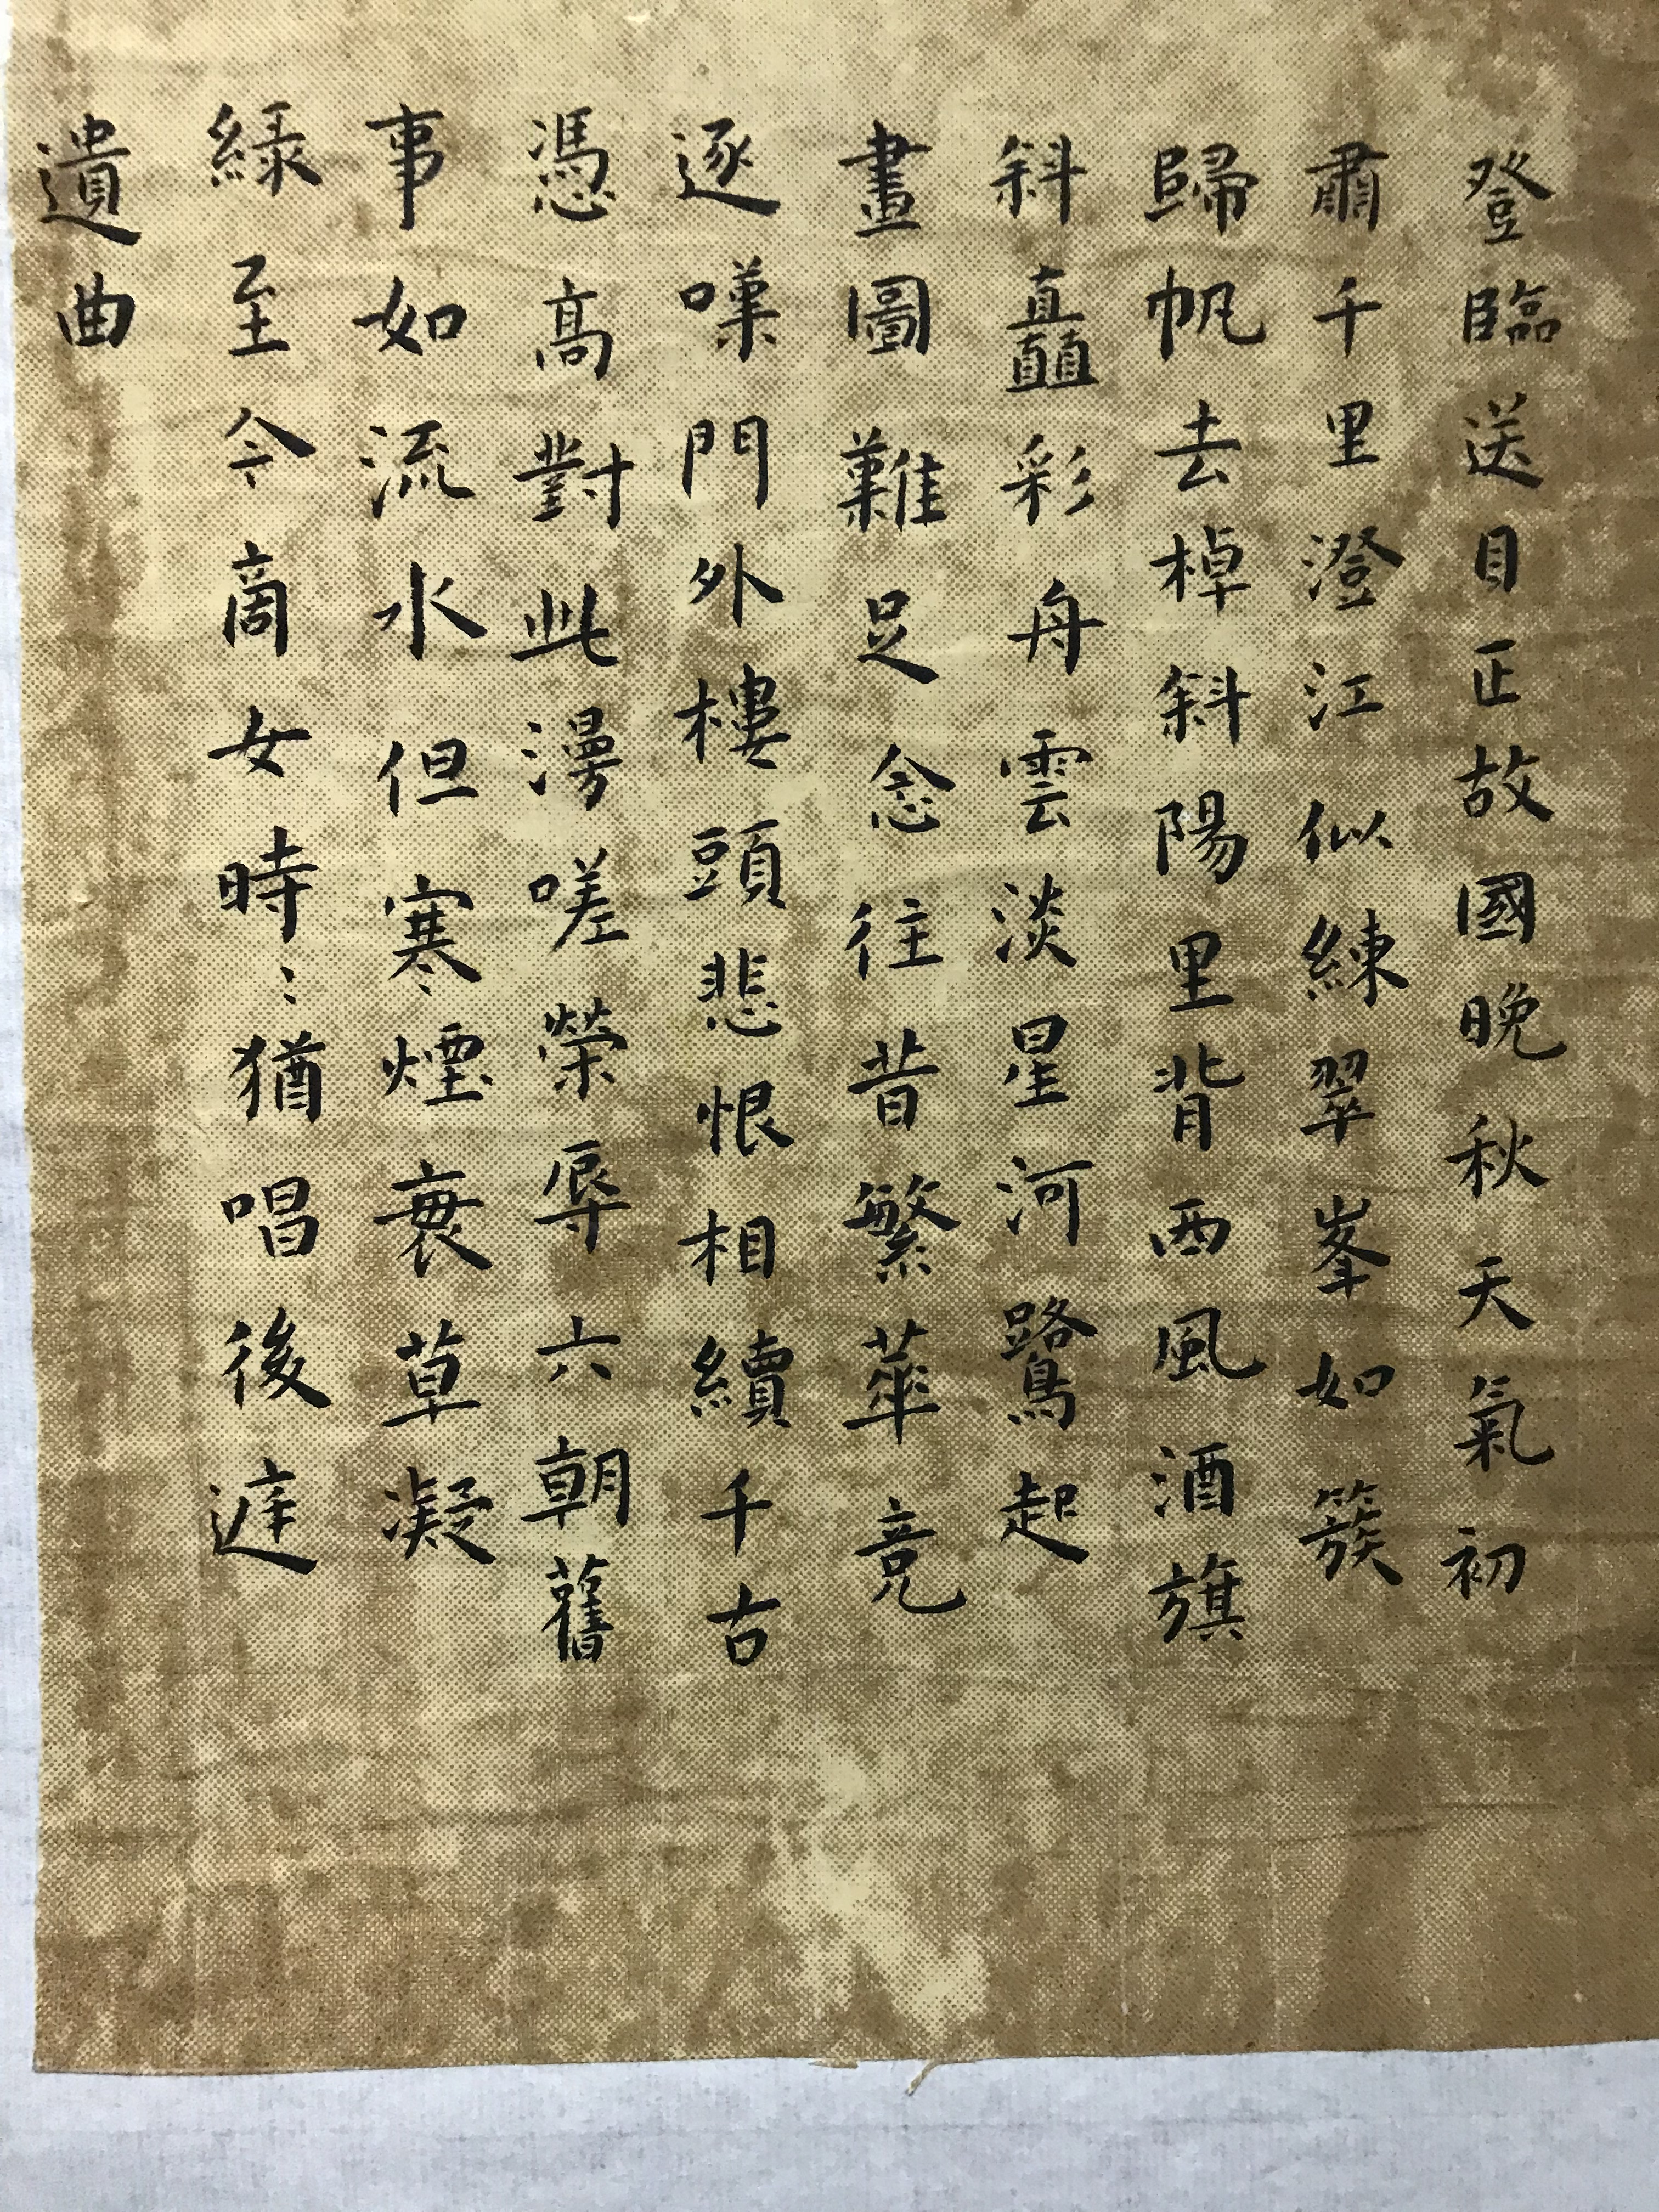 登臨送目正故國晚秋天氣初
肅千里澄江似練翠峯如簇
歸帆去棹斜陽里背西風酒旗
斜矗彩舟雲淡星河鷺起
畫圖難足念往昔繁華竞
逐嘆門外樓頭悲恨相續千古
憑高對此漫嗟榮辱六朝舊
事如流水但寒煙衰草凝
綠至今商女時：猶唱後庭
遺曲